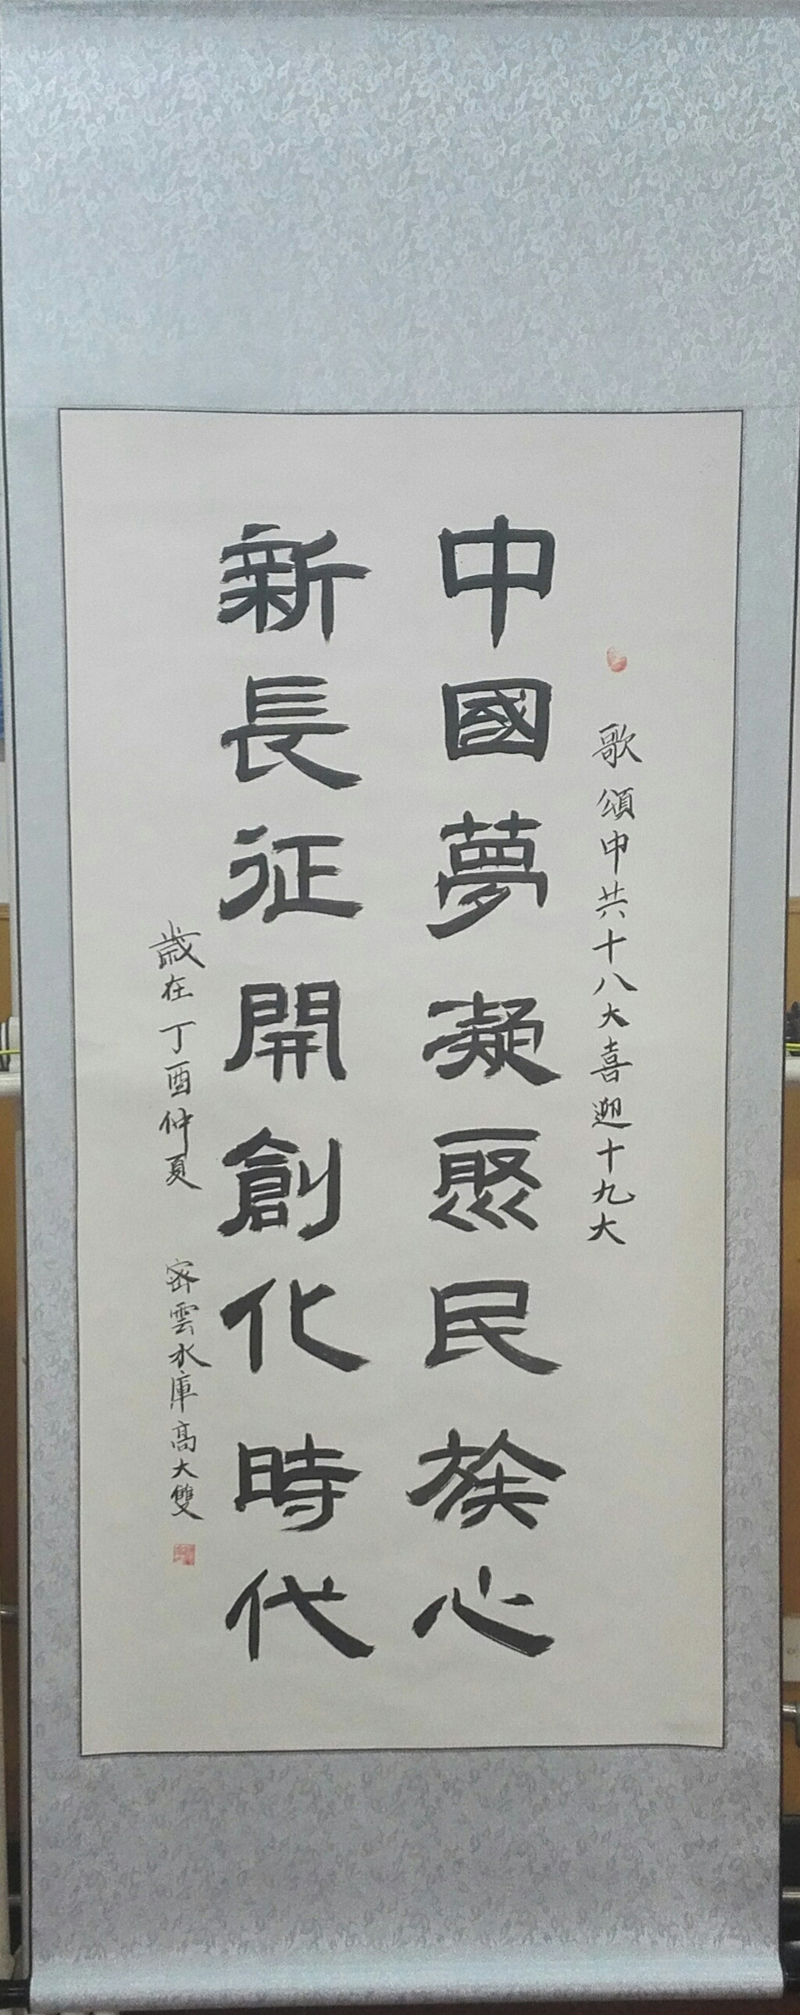 歌頌中共十八大喜迎十九大
中國夢凝聚民族心
新長征開創化時代
歲在丁酉仲夏
密雲水庫高大雙